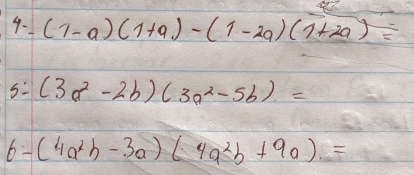 4- (1-a)(1+a) - (1-2a)(1+2a) =
5- (3a² - 2b)(3a² - 5b) =
6- (4a²b - 3a)(4a²b + 9a). =